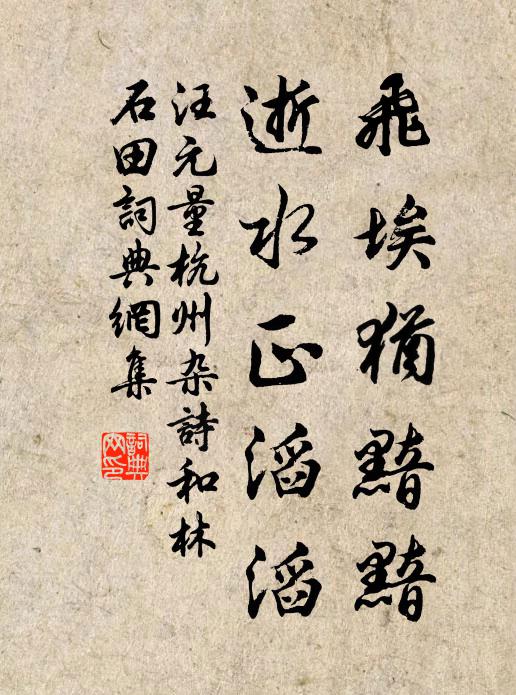 飛埃猶黯黯
逝水正滔滔
汪元量杭州杂詩和林
石田詞典網集
詞典网印